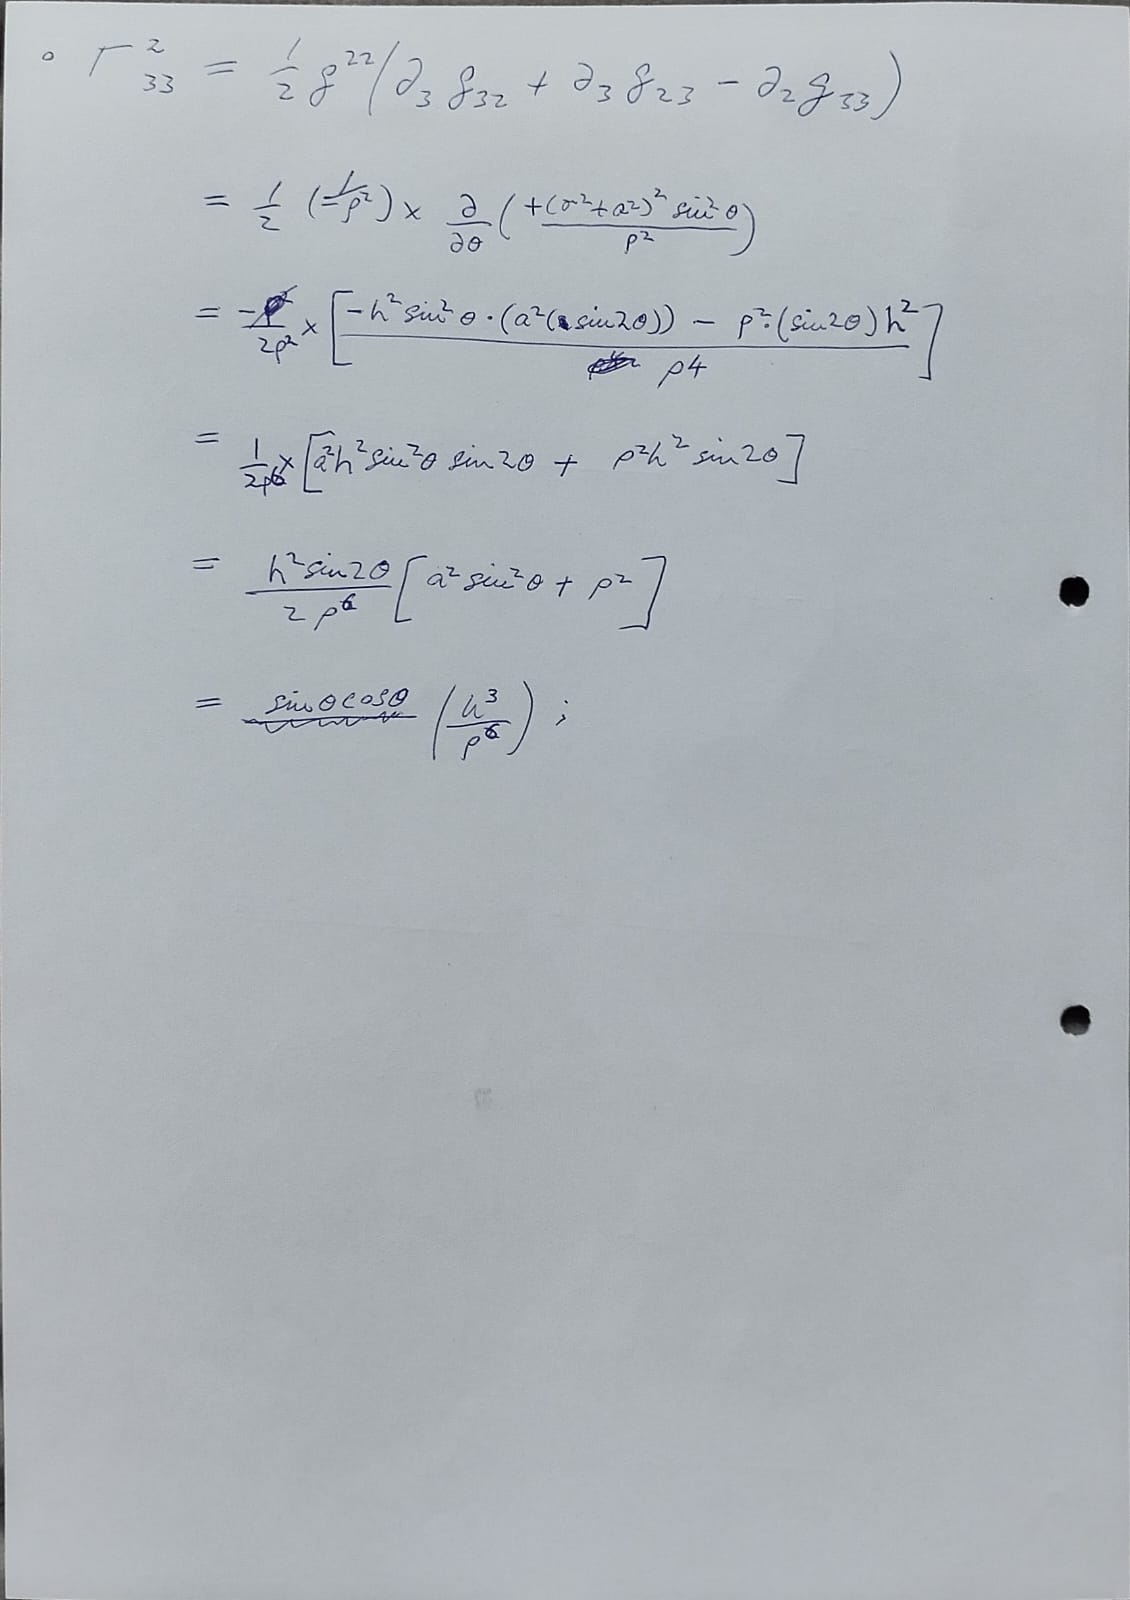 ∘ Γ²₃₃ = 1/2 g²²(∂₃ g₃₂ + ∂₃ g₂₃ − ∂₂ g₃₃)
= 1/2 (−1/ρ²) × ∂/∂θ (+(r²+a²)² sin²θ / ρ²)
= −1/2ρ² × [−h² sin²θ · (a²(sin2θ)) − ρ² · (sin2θ) h² / ρ4]
= 1/2ρ⁶ × [a²h² sin²θ sin2θ + ρ²h² sin2θ]
= h² sin2θ / 2ρ⁶ [a² sin²θ + ρ²]
= sinθcosθ (h³/ρ⁶) ;